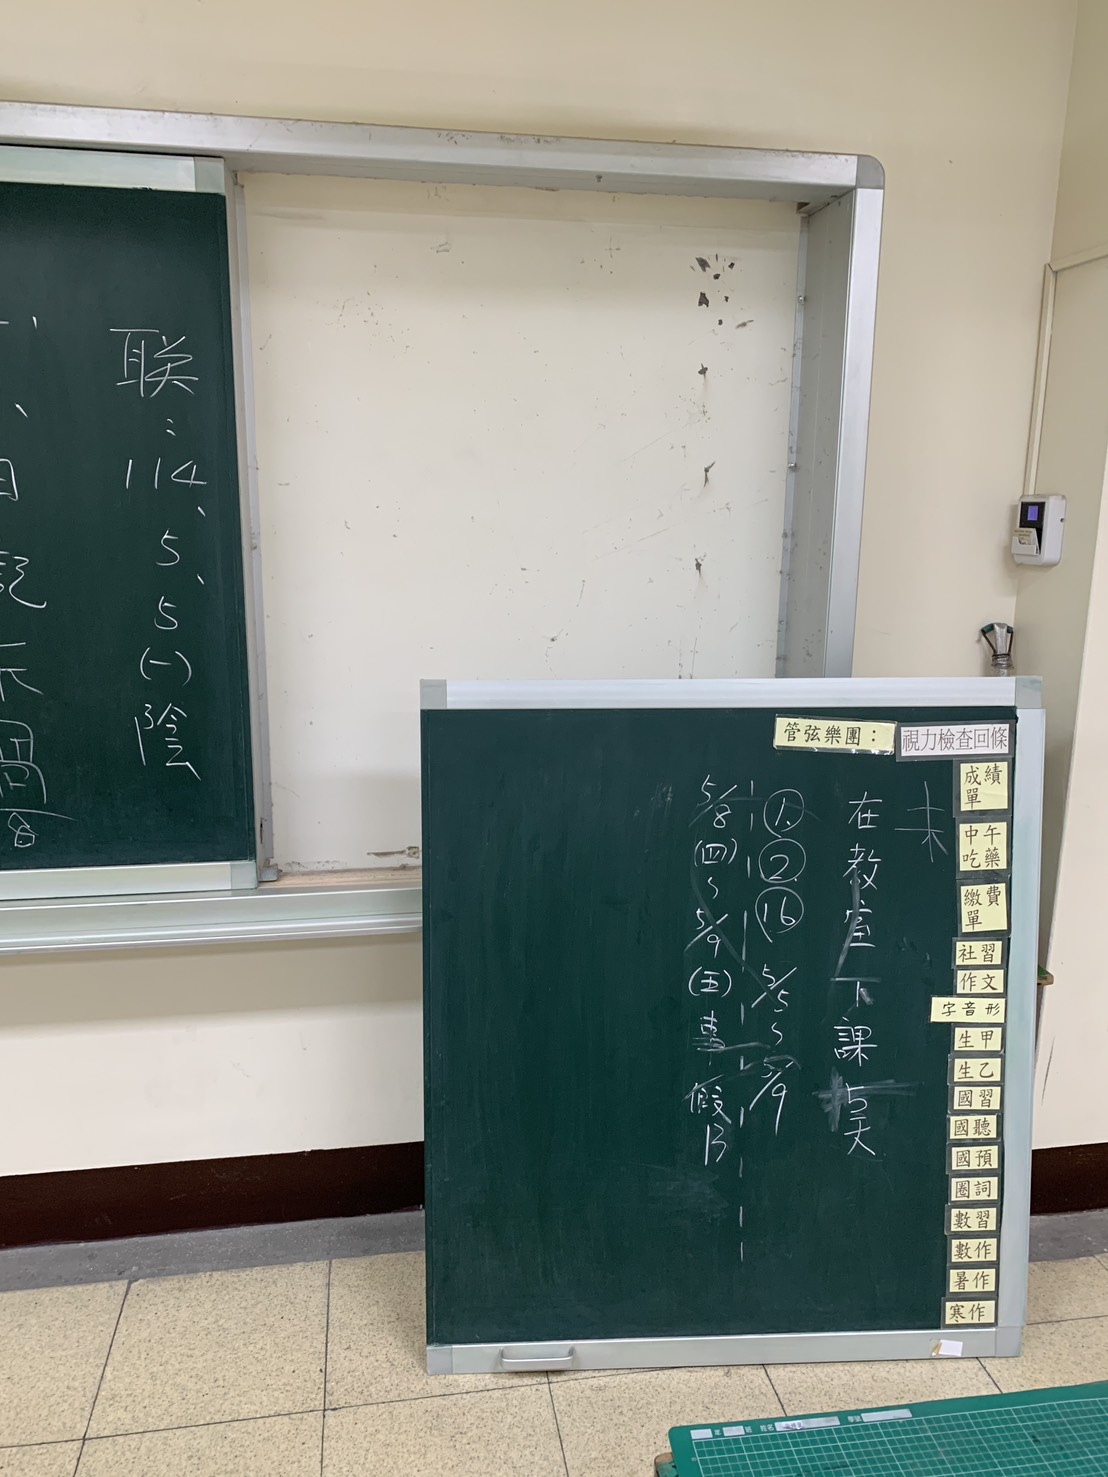 聯：114、5、5(一)陰
管弦樂團：
視力檢查回條
成績單
中午吃藥
繳費單
社習
作文
字音形
生甲
生乙
國習
國聽
國預
圈詞
數習
數作
暑作
寒作
未
在教室下課5天
① ② ⑯ 5/5~5/9
5/8(四)~5/9(五)事假13